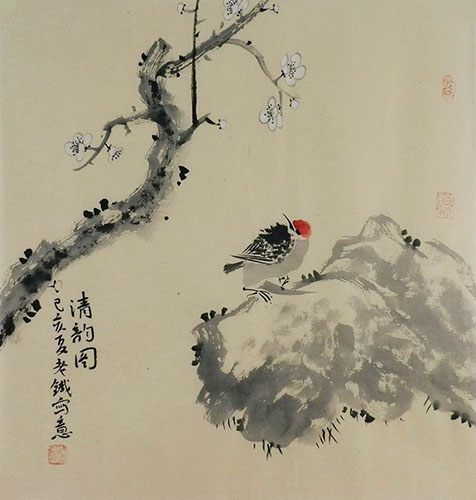 清韵图
己亥夏老铁写意